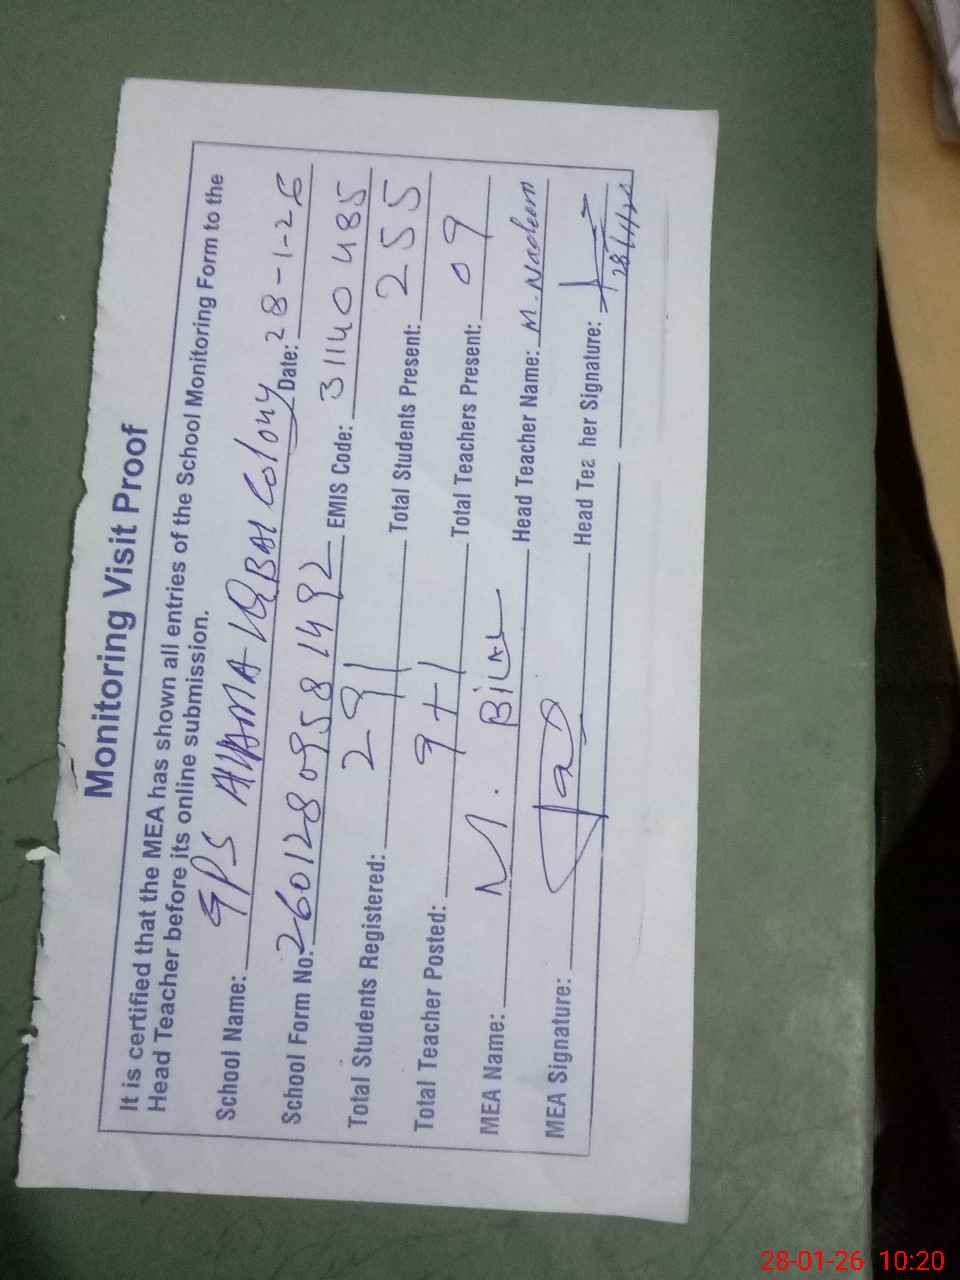 Monitoring Visit Proof
It is certified that the MEA has shown all entries of the School Monitoring Form to the
Head Teacher before its online submission.
School Name: GPS Allama IQBAL Colony Date: 28-1-26
School Form No: 26012809581492 EMIS Code: 31140485
Total Students Registered: 291 Total Students Present: 255
Total Teacher Posted: 9+1 Total Teachers Present: 09
MEA Name: M. BiLAL Head Teacher Name: M. Nadeem
MEA Signature: Head Tea her Signature:
28-01-26 10:20